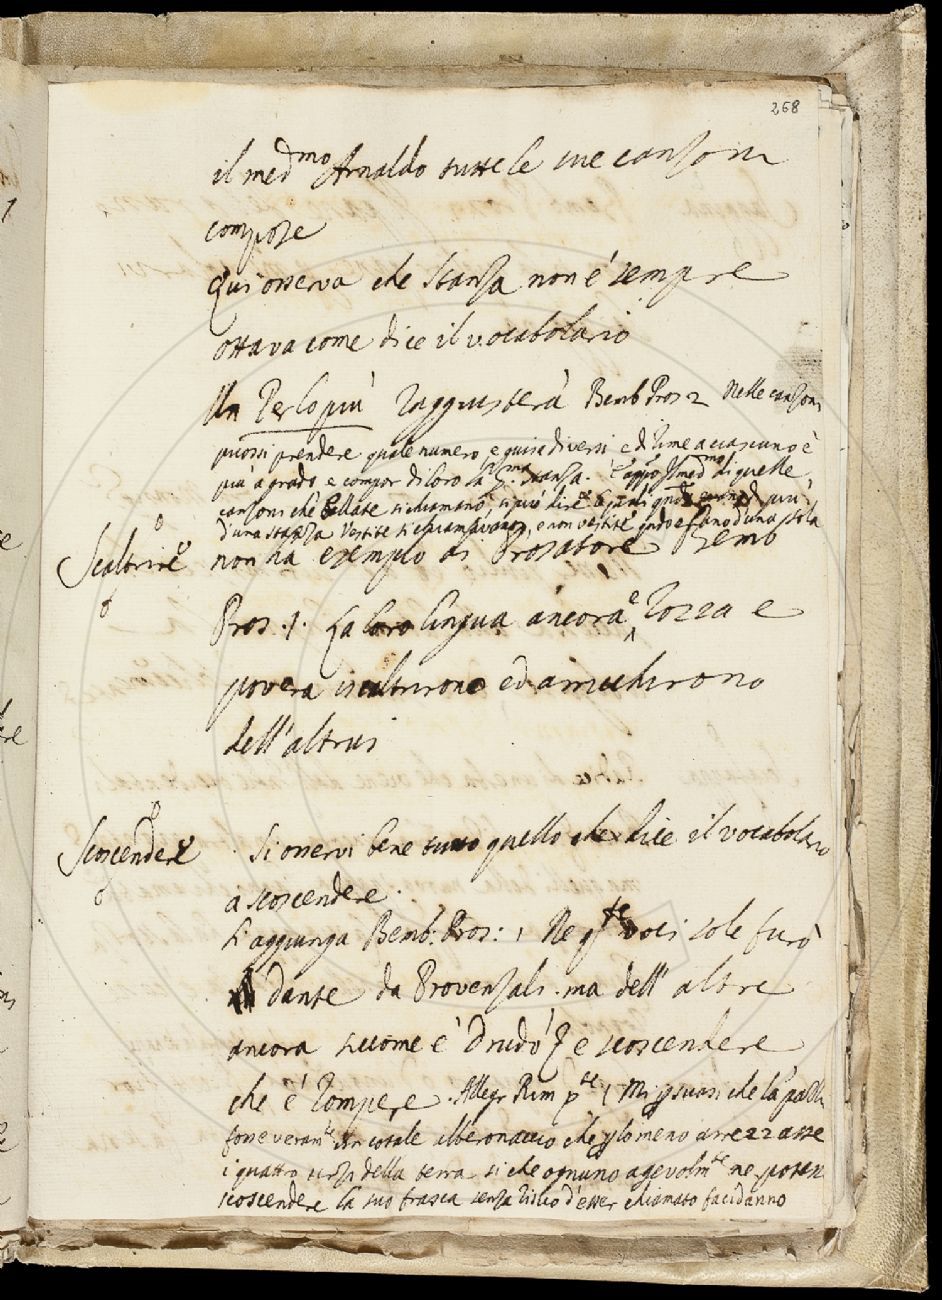 268
il med.mo Arnaldo tutte le sue canzoni
compose
Qui osserva che Stanza non è sempre
ottava come dice il vocabolario
Un Per lo più raggiusterà Bemb Pros 2 Nelle canzoni
puossi prendere quale numero e guisa di versi e di rime a ciascuno è
più a grado e compor di loro la p.ma stanza. di quelle
canzoni che Ballate si chiamano si può dire più
d'una stanza Vestite si chiamavano, e non vestite d'una sola
Scaltrire non ha exemplo di Prosatore Bemb
Pros. 1. La loro lingua ancora e rozza e
povera iscaltrirono ed arricchirono
dell'altrui
Scoscendere Si osservi bene tutto quello che dice il vocabolario
a scoscendere.
L'aggiunga Bemb: Pros: 1 Ne q.te voci sole furò
dante da Provenzali. ma dell'altre
ancora siccome è Drudo e scoscendere
che è rompere. Allegr Rim p.te 1 Mi p'suasi che la
fosse veram.te un cotale alberonaccio che p'lomeno arrezzasse
i quattro della terra si che ognuno agevolm.te ne potess
scoscendere la suo frasca senza risico d'esser chiamato facidanno